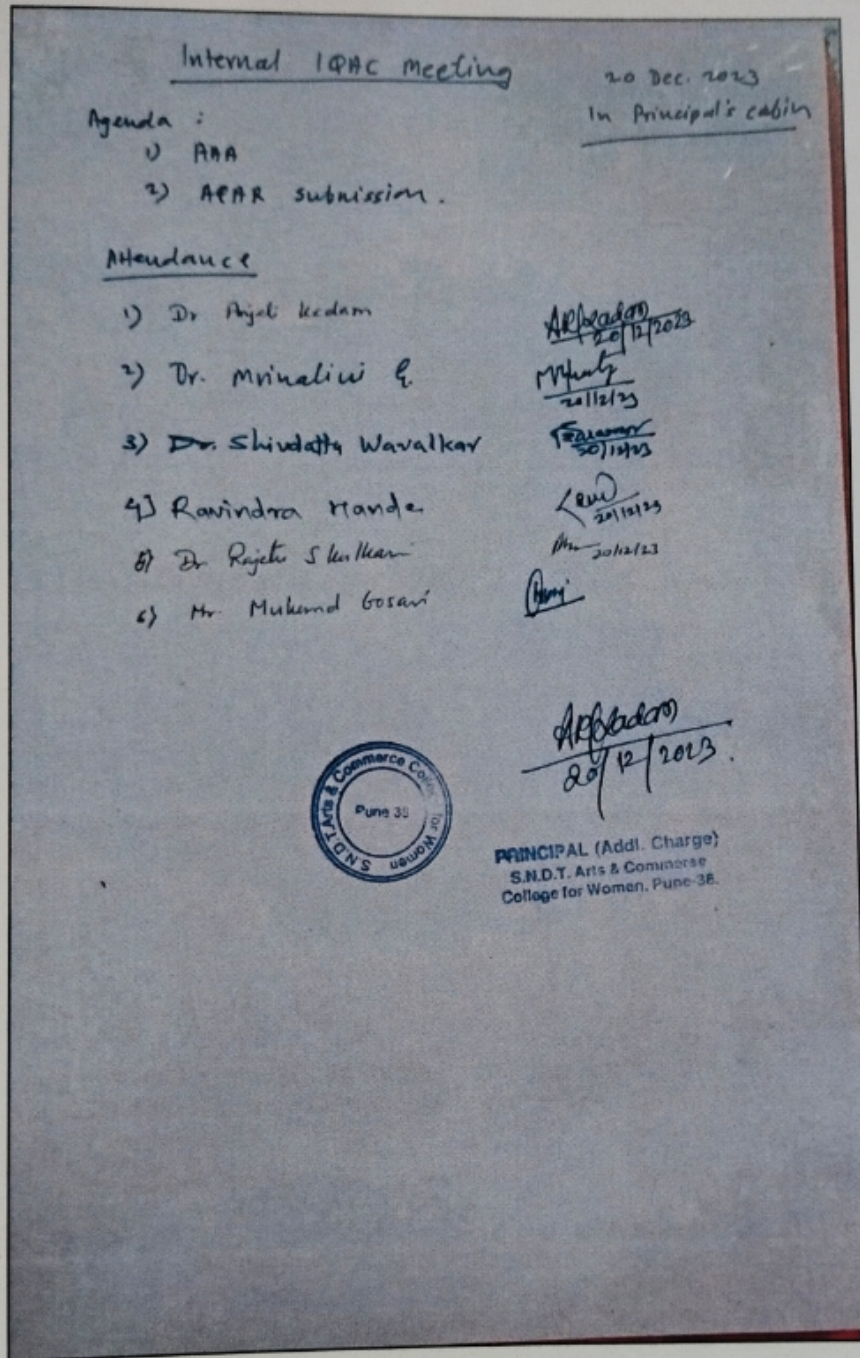 Internal IQAC Meeting
20 Dec. 2023
In Principal's cabin
Agenda :
1) AAA
2) AQAR submission.
Attendance
1) Dr Anjali Kadam
20/12/2023
2) Dr. Mrinalini
20/12/23
3) Dr. Shivdatta Wavalkar
20/12/23
4] Ravindra
20/12/23
5) Dr
20/12/23
6) Mr. Mukund Gosavi
20/12/2023.
S.N.D.T. Arts & Commerce College for Women
Pune 38
PRINCIPAL (Addl. Charge)
S.N.D.T. Arts & Commerse
College for Women, Pune-38.